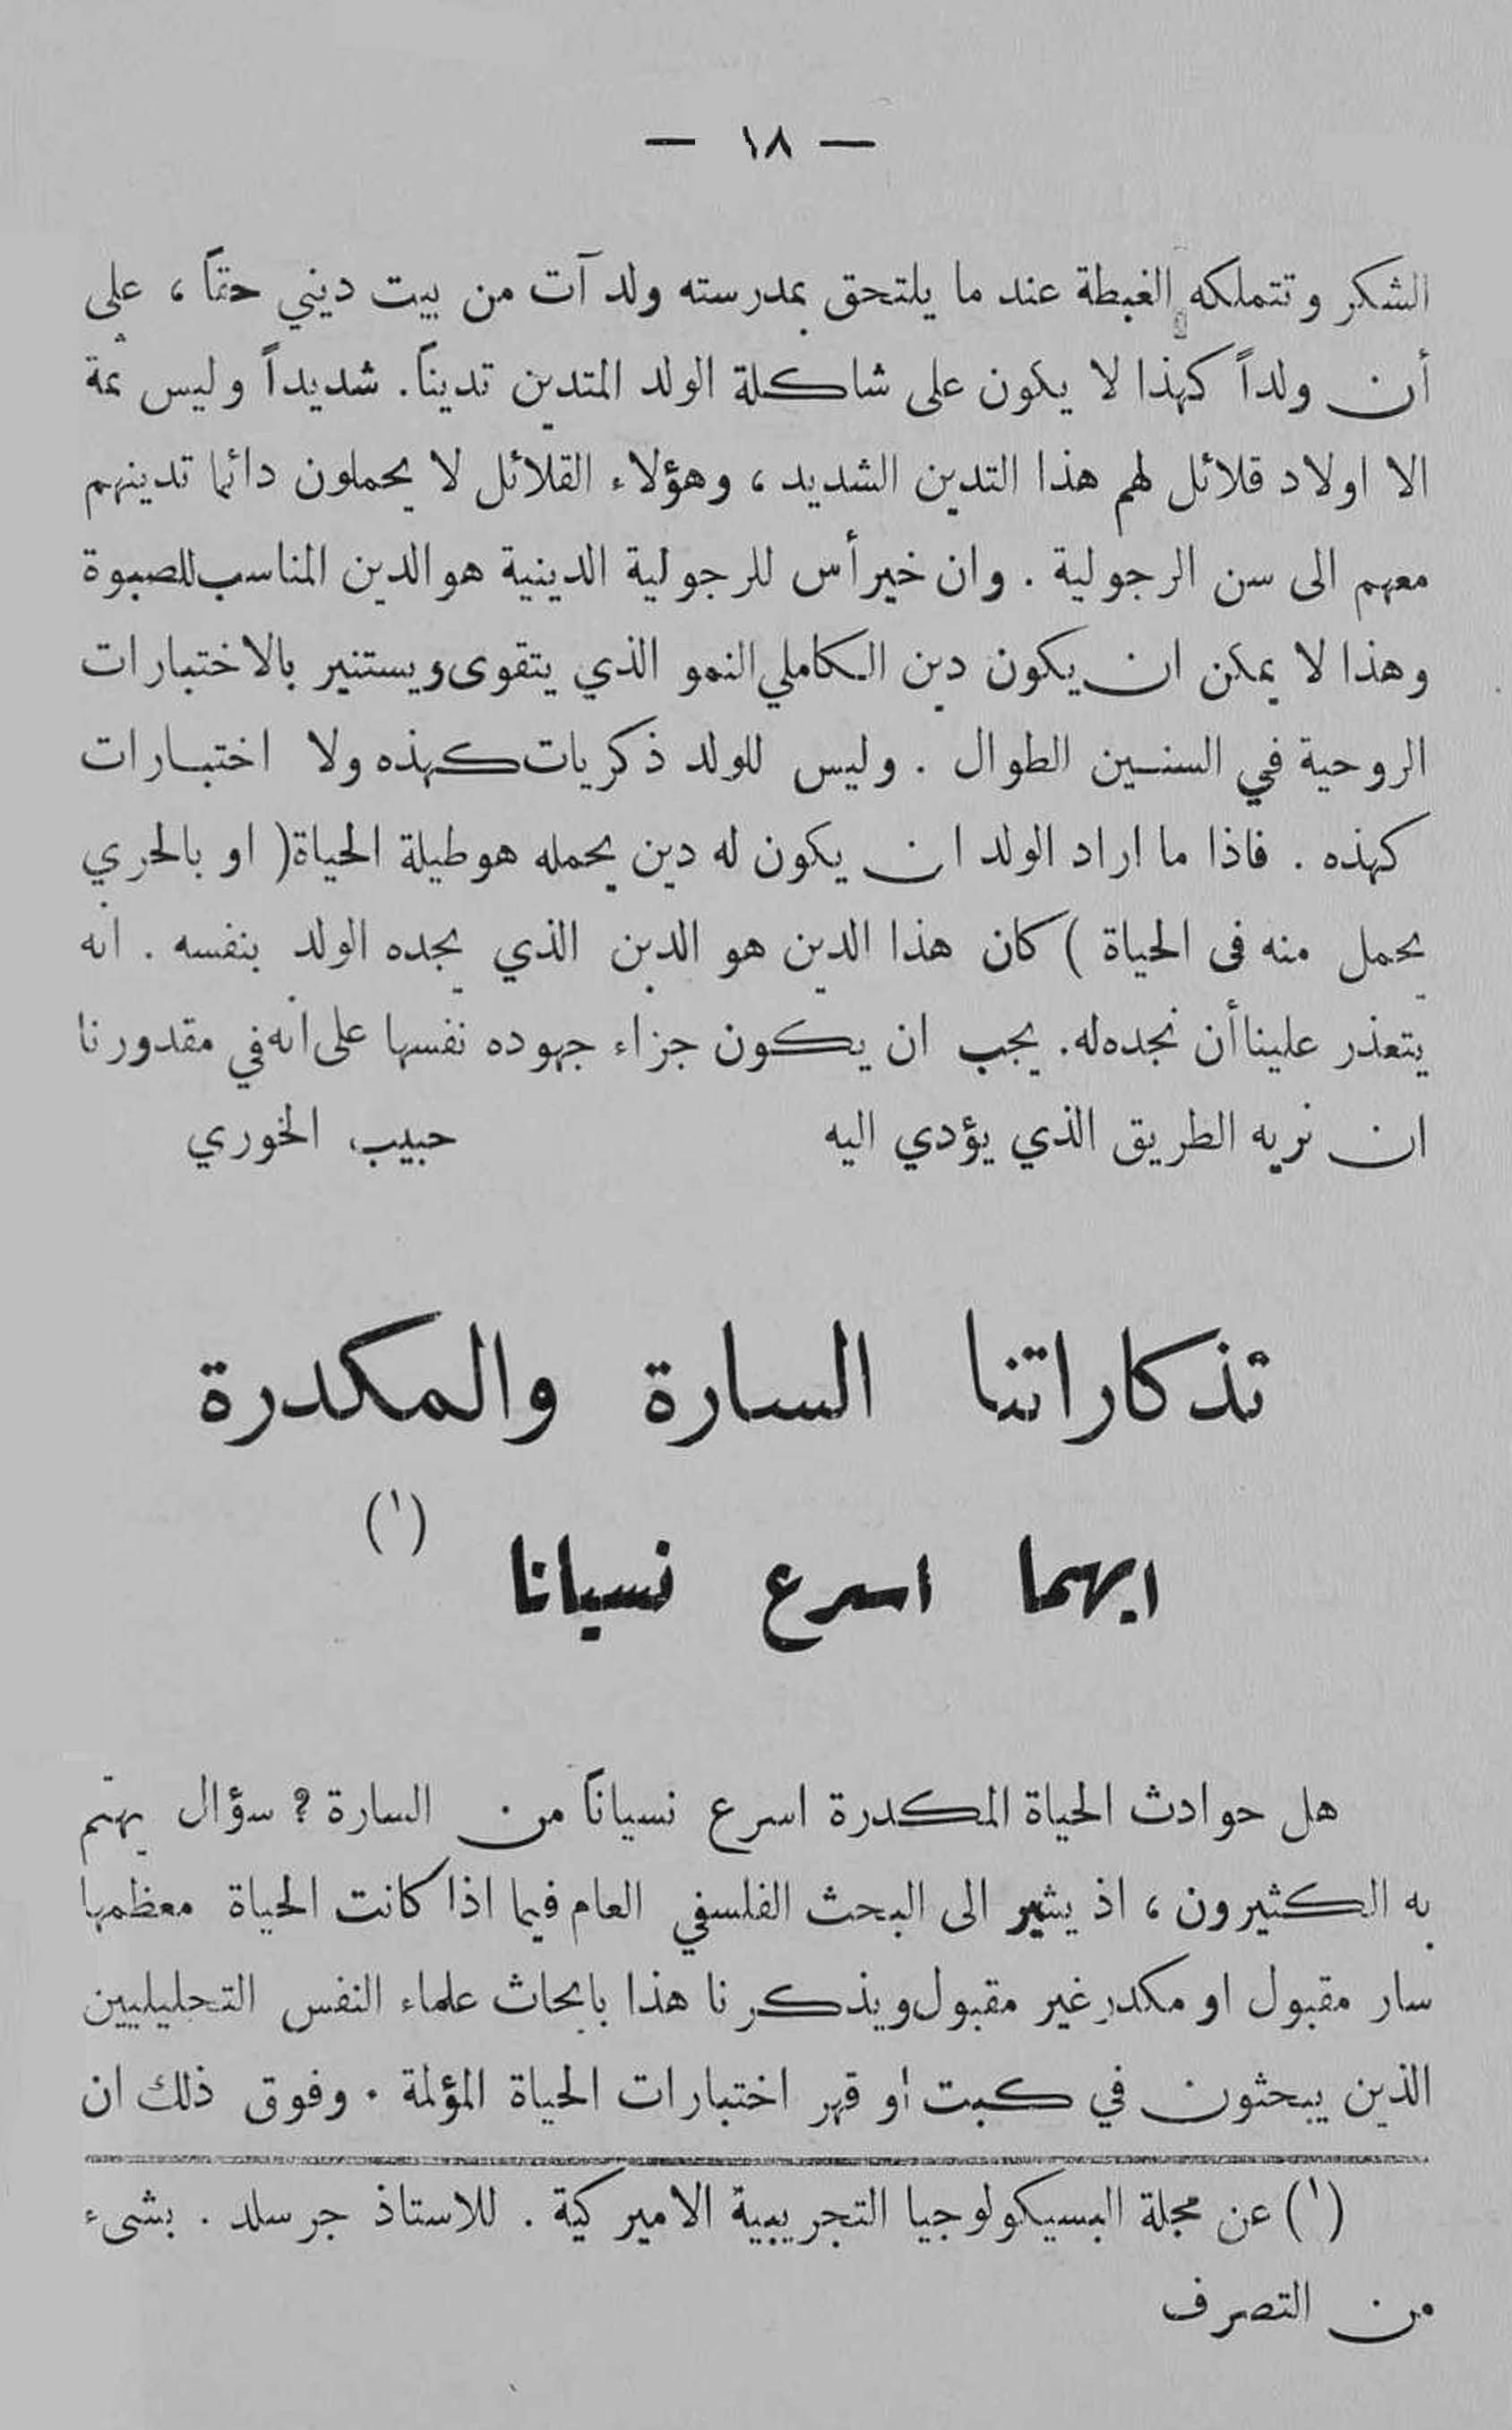 — ١٨ —
الشكر وتتملكه الغبطة عند ما يلتحق بمدرسته ولد آت من بيت ديني حقاً ، على
أن ولداً كهذا لا يكون على شاكلة الولد المتدين تديناً . شديداً وليس ثمة
الا اولاد قلائل لهم هذا التدين الشديد ، وهؤلاء القلائل لا يحملون دائما تدينهم
معهم الى سن الرجولية . وان خير أس للرجولية الدينية هو الدين المناسب للصبوة
وهذا لا يمكن ان يكون دين الكاملي النمو الذي يتقوى ويستنير بالاختبارات
الروحية في السنين الطوال . وليس للولد ذكريات كهذه ولا اختبارات
كهذه . فاذا ما اراد الولد ان يكون له دين يحمله هو طيلة الحياة ( او بالحري
يحمل منه فى الحياة ) كان هذا الدين هو الدين الذي يجده الولد بنفسه . انه
يتعذر علينا أن نجده له . يجب ان يكون جزاء جهوده نفسها على انه في مقدورنا
ان نريه الطريق الذي يؤدي اليه حبيب الخوري
تذكاراتنا السارة والمكدرة
ايهما اسرع نسيانا (١)
هل حوادث الحياة المكدرة اسرع نسياناً من السارة ؟ سؤال يهتم
به الكثيرون ، اذ يثير الى البحث الفلسفي العام فيما اذا كانت الحياة معظمها
سار مقبول او مكدر غير مقبول ويذكرنا هذا بابحاث علماء النفس التحليليين
الذين يبحثون في كبت او قهر اختبارات الحياة المؤلمة . وفوق ذلك ان
(١) عن مجلة البسيكولوجيا التجريبية الاميركية . للاستاذ جرسلد . بشىء
من التصرف